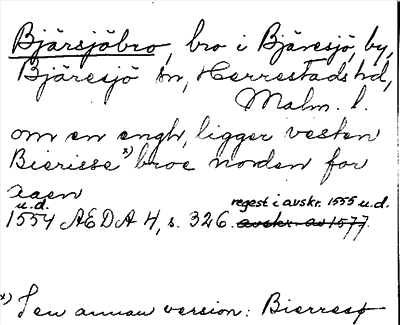 Bjärsjöbro, bro i Bjäresjö, by,
Bjäresjö sn, Herrestads hd,
Malm. l.
om en engh, ligger vesten
Bierisse x) broe norden for
aaen
u.d. regest i avskr. 1555 u.d.
1554 ÆDA 4, s. 326. avskr. av 1577.
x) I en annan version: Bierresø